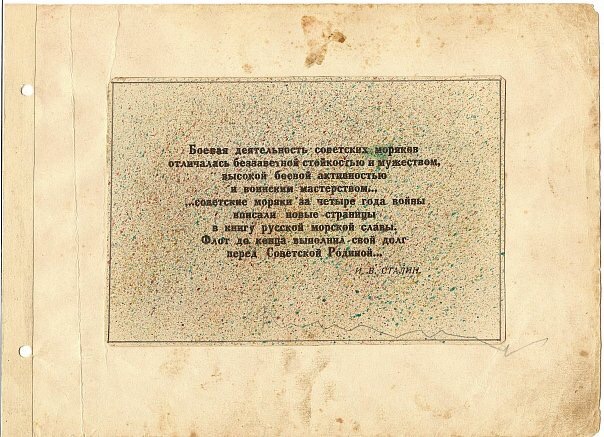 Боевая деятельность советских моряков
отличалась беззаветной стойкостью и мужеством,
высокой боевой активностью
и воинским мастерством...
...советские моряки за четыре года войны
вписали новые страницы
в книгу русской морской славы.
Флот до конца выполнил свой долг
перед Советской Родиной...
И. В. СТАЛИН.